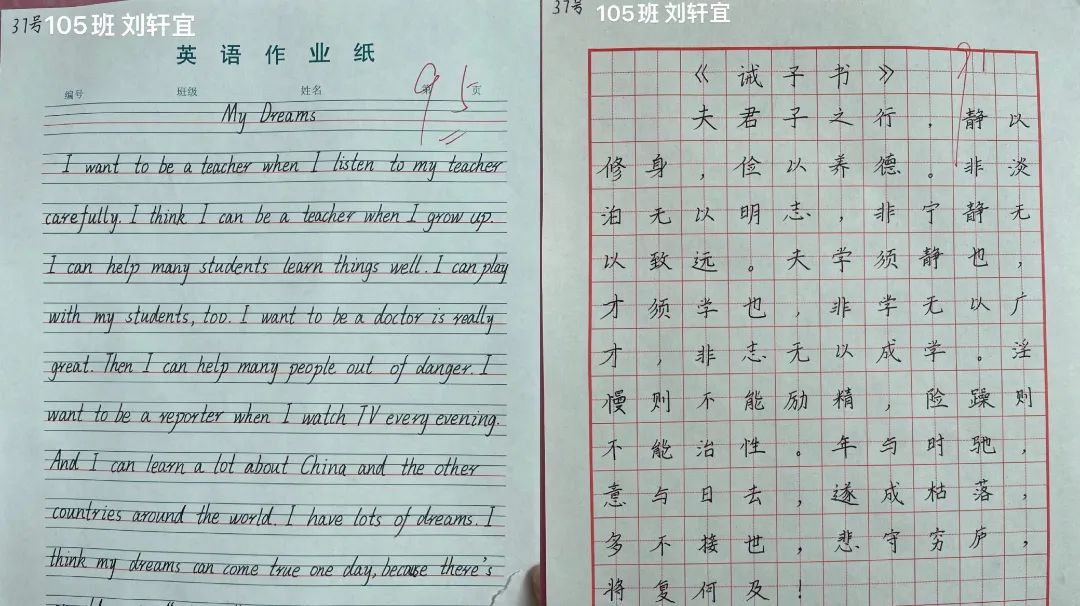 37号 105班 刘轩宜
英语作业纸
编号 班级 姓名 第 页
95
My Dreams
I want to be a teacher when I listen to my teacher
carefully. I think I can be a teacher when I grow up.
I can help many students learn things well. I can play
with my students, too. I want to be a doctor is really
great. Then I can help many people out of danger. I
want to be a reporter when I watch TV every evening.
And I can learn a lot about China and the other
countries around the world. I have lots of dreams. I
think my dreams can come true one day, because there's
37号 105班 刘轩宜
91
《诫子书》
夫君子之行，静以
修身，俭以养德。非淡
泊无以明志，非宁静无
以致远。夫学须静也，
才须学也，非学无以广
才，非志无以成学。淫
慢则不能励精，险躁则
不能治性。年与时驰，
意与日去，遂成枯落，
多不接世，悲守穷庐，
将复何及！